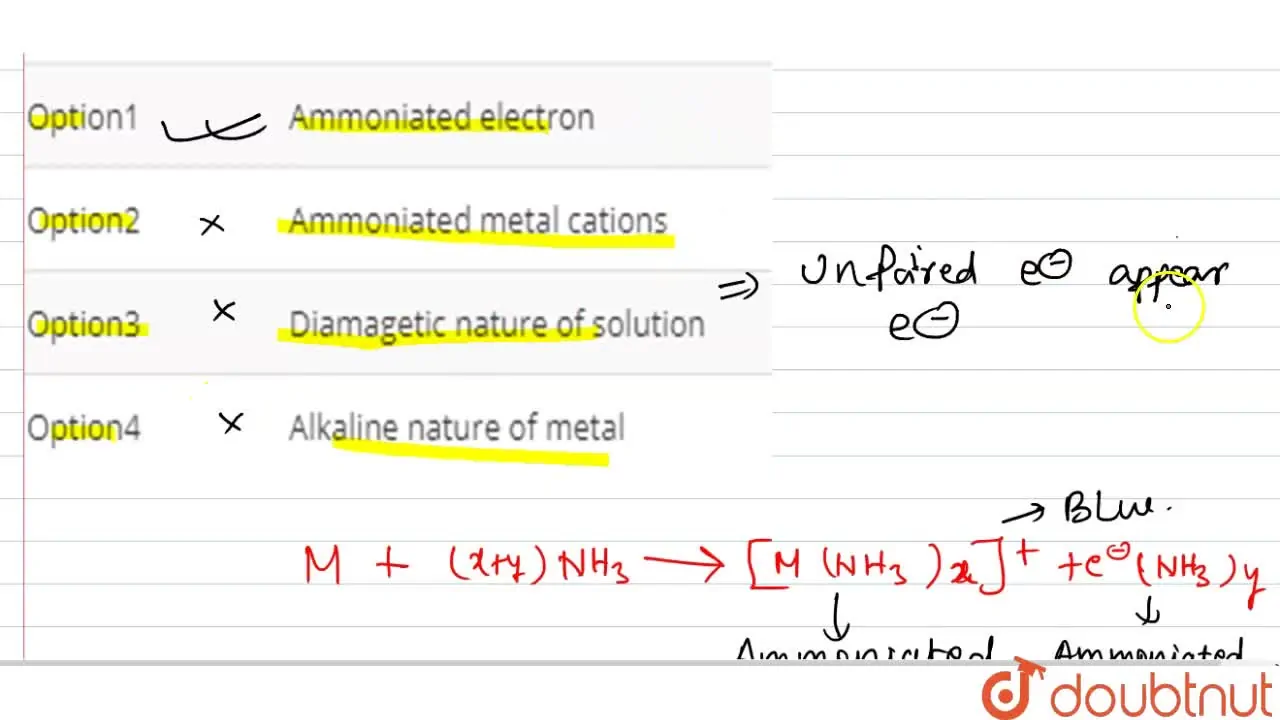 Option1 Ammoniated electron
Option2 × Ammoniated metal cations
⇒ Unpaired e⊖ appear
e⊖
Option3 × Diamagetic nature of solution
Option4 × Alkaline nature of metal
→ Blue.
M + (x+y) NH3 → [M (NH3)x]+ + e⊖ (NH3)y
↓ ↓
Ammoniated Ammoniated
doubtnut